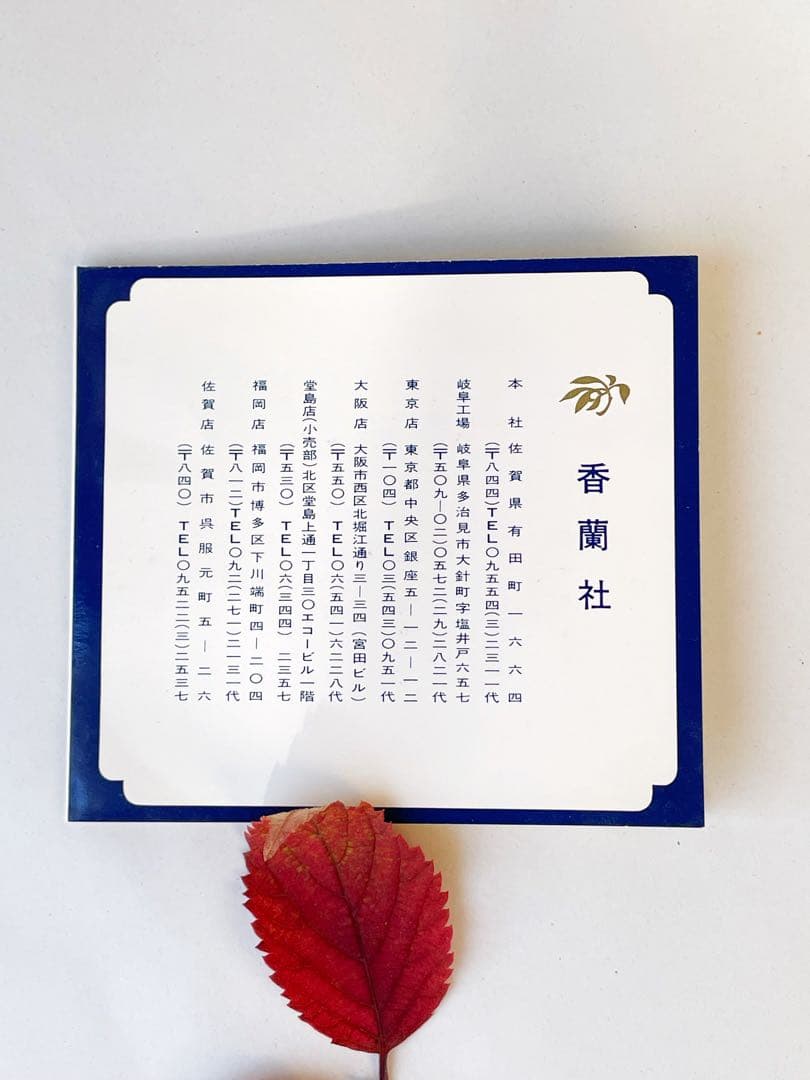 香蘭社
本社 佐賀県有田町一六六四
(〒八四四)TEL〇九五五四(三)二三一一代
岐阜工場 岐阜県多治見市大針町字塩井戸六五七
(〒五〇九—〇二)〇五七二(二九)二八二一代
東京店 東京都中央区銀座五—一二—一二
(〒一〇四)TEL〇三(五四三)〇九五一代
大阪店 大阪市西区北堀江通り三—三四(宮田ビル)
(〒五五〇)TEL〇六(五四一)六二二八代
堂島店(小売部)北区堂島上通一丁目三〇エコービル一階
(〒五三〇)TEL〇六(三四四)二三五七
福岡店 福岡市博多区下川端町四—二〇四
(〒八一二)TEL〇九二(二七一)二一三一代
佐賀店 佐賀市呉服元町五—二六
(〒八四〇)TEL〇九五二二(三)二五三七